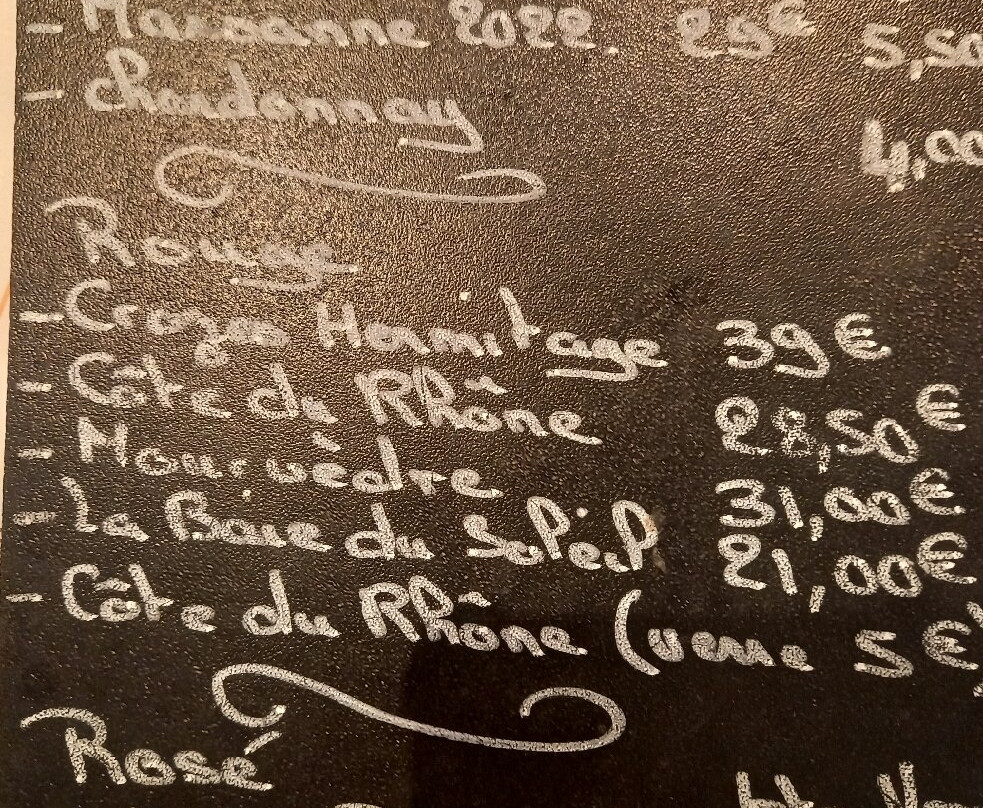 - Marsanne 2022. 29€ 5,50
- Chardonnay 4,00
Rouge
- Crozes Hermitage 39€
- Côte du Rhône 28,50€
- Mourvèdre 31,00€
- La Baie du Soleil 21,00€
- Côte du Rhône (verre 5€)
Rosé